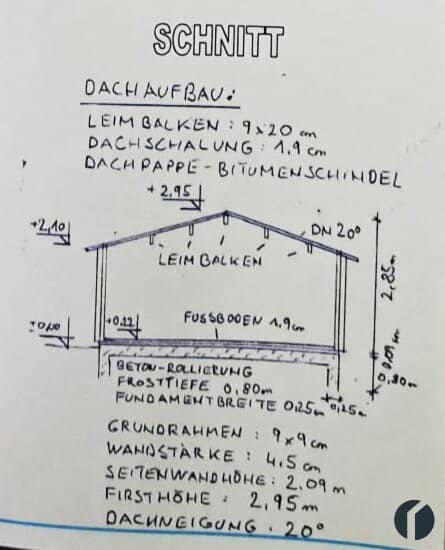 SCHNITT
DACHAUFBAU:
LEIMBALKEN : 9x20 cm
DACHSCHALUNG : 1,9 cm
DACHPAPPE - BITUMENSCHINDEL
+ 2,95
+2,10
DN 20°
LEIMBALKEN
2,85m
±0,00
+0,12
FUSSBODEN 1,9cm
0,09m
0,80m
BETON-ROLLIERUNG
FROSTTIEFE 0,80m
FUNDAMENTBREITE 0,25m
0,25m
GRUNDRAHMEN : 9x9cm
WANDSTÄRKE : 4,5cm
SEITENWANDHÖHE : 2,09m
FIRSTHÖHE : 2,95m
DACHNEIGUNG : 20°